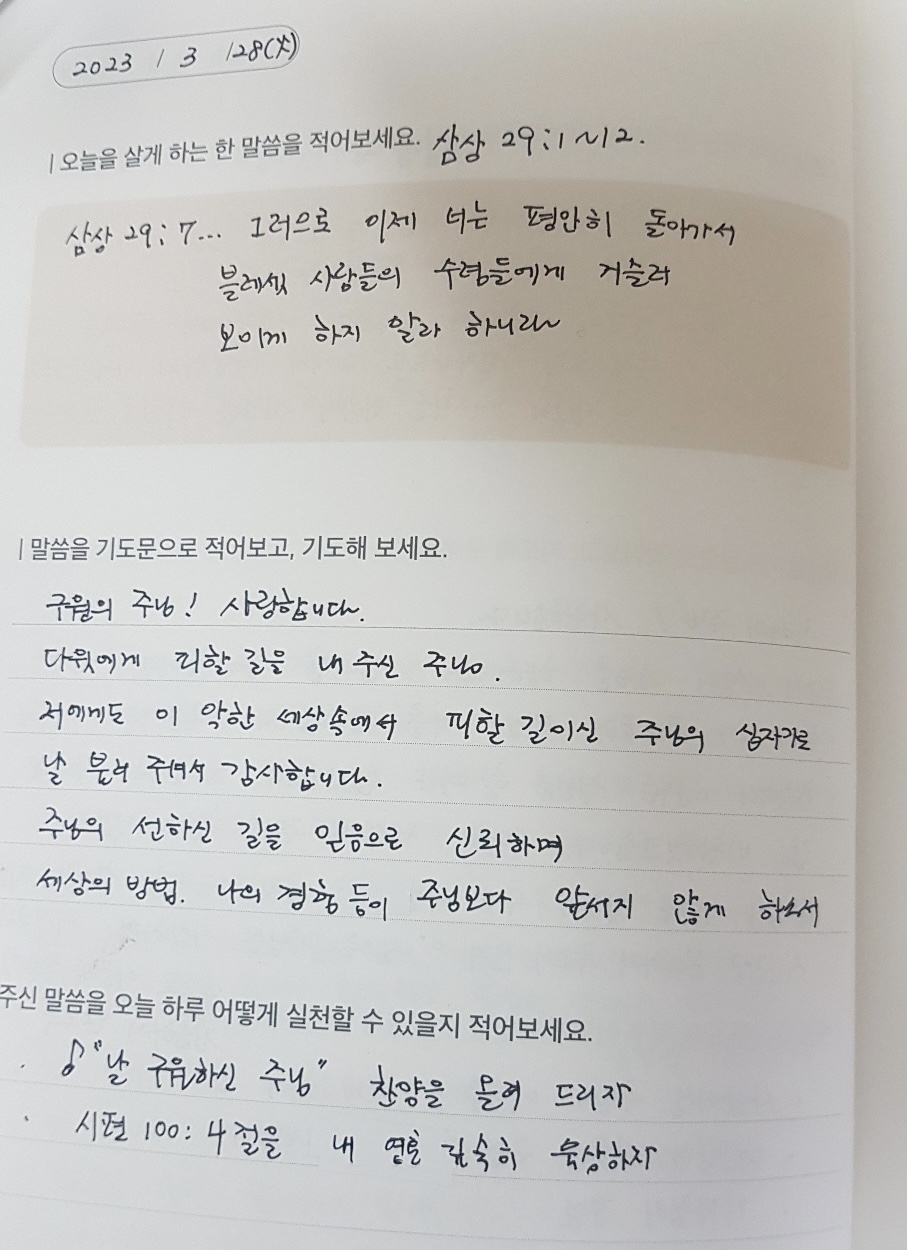 2023 / 3 /28(火)
오늘을 살게 하는 한 말씀을 적어보세요. 삼상 29:1~12.
삼상 29:7... 그러므로 이제 너는 평안히 돌아가서
블레셋 사람들의 수령들에게 거슬러
보이게 하지 말라 하니라~
말씀을 기도문으로 적어보고, 기도해 보세요.
구원의 주님! 사랑합니다.
다윗에게 피할 길을 내 주신 주님.
저에게도 이 악한 세상속에서 피할 길이신 주님의 십자가로
날 불러 주셔서 감사합니다.
주님의 선하신 길을 믿음으로 신뢰하며
세상의 방법. 나의 경험 등이 주님보다 앞서지 않게 하소서
주신 말씀을 오늘 하루 어떻게 실천할 수 있을지 적어보세요.
· ♪ "날 구원하신 주님" 찬양을 올려 드리자
· 시편 100:4절을 내 영혼 깊숙히 묵상하자